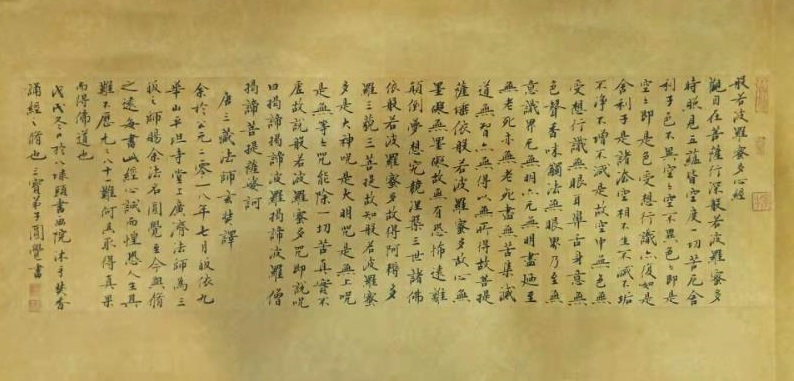 般若波羅蜜多心經
觀自在菩薩行深般若波羅蜜多
時照見五蘊皆空度一切苦厄舍
利子色不異空々不異色々即是
空々即是色受想行識亦復如是
舍利子是諸法空相不生不滅不垢
不淨不增不減是故空中無色無
受想行識無眼耳鼻舌身意無
色聲香味觸法無眼界乃至無
意識界無無明亦無無明盡乃至
無老死亦無老死盡無苦集滅
道無智亦無得以無所得故菩提
薩埵依般若波羅蜜多故心無
罣礙無罣礙故無有恐怖遠離
顛倒夢想究竟涅槃三世諸佛
依般若波羅蜜多故得阿耨多
羅三藐三菩提故知般若波羅蜜
多是大神呪是大明呪是無上呪
是無等々呪能除一切苦真實不
虛故說般若波羅蜜多呪即說呪
曰揭諦揭諦波羅揭諦波羅僧
揭諦菩提薩婆訶
唐三藏法師玄奘譯
余於公元二零一八年七月皈依九
華山平坦寺堂上廣濟法師為三
皈之師賜余法名圓覺至今無
之遠每書此經心誠而惶恐人生真
難不歷九々八十一難何取得真果
而得佛道也
戊戌冬日於八味頤書画院沐手焚香
誦經之也三寶弟子圓覺書